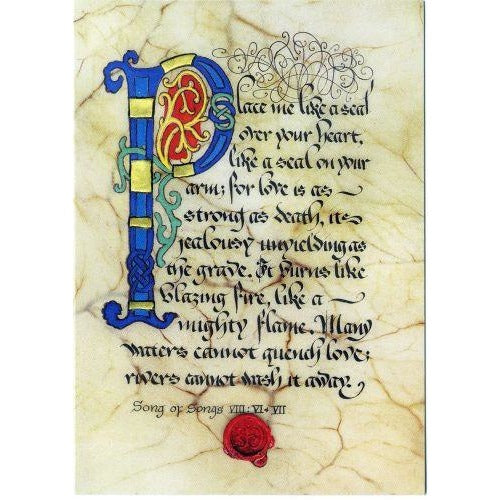 Place me like a seal
over your heart,
like a seal on your
arm; for love is as
strong as death, its
jealousy unyielding as
the grave. It burns like
blazing fire, like a
mighty flame. Many
waters cannot quench love;
rivers cannot wash it away.
Song of Songs VIII: VI+VII